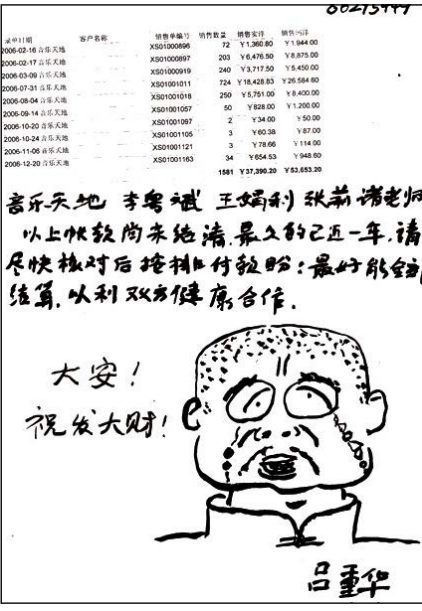 录单日期 客户名称 销售单编号 销售数量 销售实洋 销售码洋
2006-02-16 音乐天地 XS01000896 72 ¥1,360.80 ¥1,944.00
2006-02-17 音乐天地 XS01000897 203 ¥6,476.50 ¥8,875.00
2006-03-09 音乐天地 XS01000919 240 ¥3,717.50 ¥5,450.00
2006-07-31 音乐天地 XS01001011 724 ¥18,428.83 ¥26,584.60
2006-08-04 音乐天地 XS01001018 250 ¥5,751.00 ¥8,400.00
2006-09-14 音乐天地 XS01001057 50 ¥828.00 ¥1,200.00
2006-10-20 音乐天地 XS01001097 2 ¥34.00 ¥50.00
2006-10-24 音乐天地 XS01001105 3 ¥60.38 ¥87.00
2006-11-06 音乐天地 XS01001121 3 ¥78.66 ¥114.00
2006-12-20 音乐天地 XS01001163 34 ¥654.53 ¥948.60
1581 ¥37,390.20 ¥53,653.20
音乐天地 李粤斌 王娟利 张莉 诸老师
以上帐款尚未结清,最久的已近一年,请
尽快核对后按排付款盼:最好能全部
结算,以利双方健康合作.
大安!
祝发大财!
吕重华